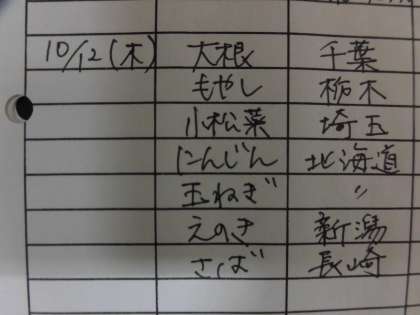 10/12(木) 大根 千葉
もやし 栃木
小松菜 埼玉
にんじん 北海道
玉ねぎ 〃
えのき 新潟
さば 長崎